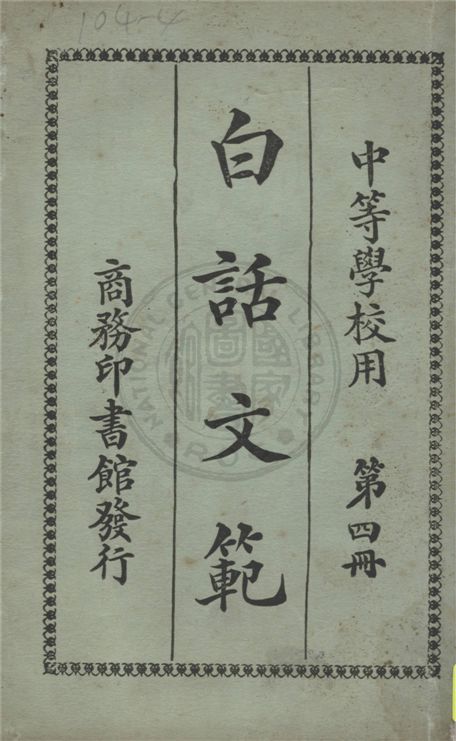 104-4
中等學校用 第四冊
白話文範
商務印書館發行
國家圖書館
NATIONAL CENTRAL LIBRARY